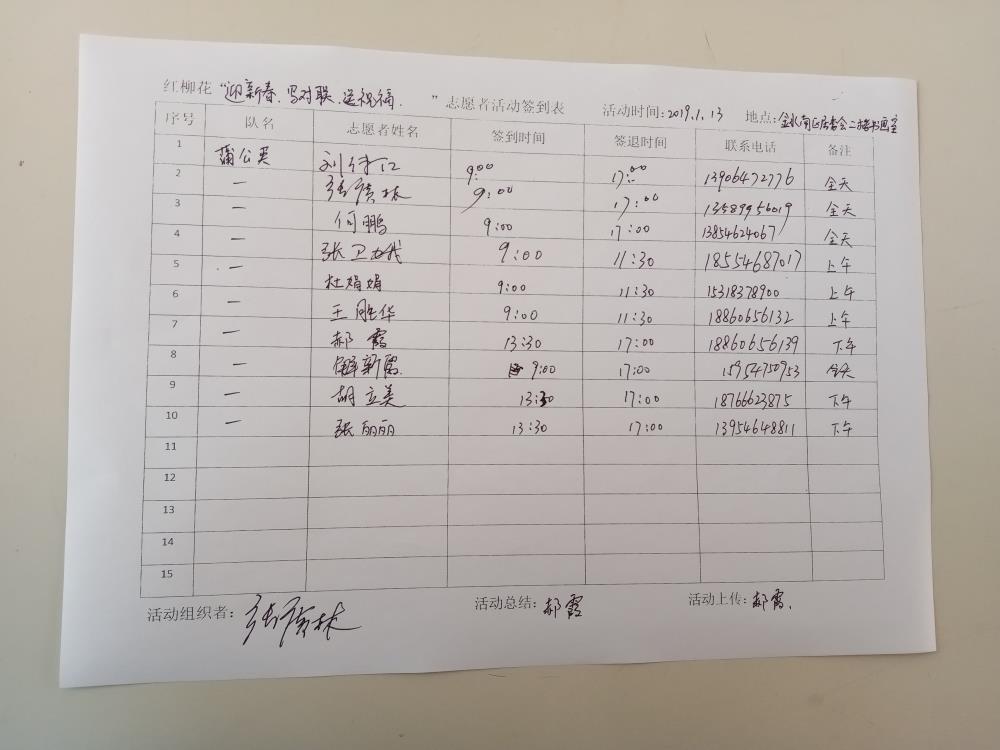 红柳花“迎新春.写对联.送祝福. ”志愿者活动签到表 活动时间:2019.1.13 地点:金水南区居委会二楼书画室
序号 队名 志愿者姓名 签到时间 签退时间 联系电话 备注
1 蒲公英 刘 江 9:00 17:00 13906472776 全天
2 一 张广林 9:00 17:00 13589956019 全天
3 一 何鹏 9:00 17:00 13854624067 全天
4 一 张卫 9:00 11:30 18554687017 上午
5 一 杜娟娟 9:00 11:30 15318378900 上午
6 一 王胜华 9:00 11:30 18860656132 上午
7 一 郝霞 13:30 17:00 18860656139 下午
8 一 新霞 9:00 17:00 15954750953 全天
9 一 胡立美 13:30 17:00 18766623875 下午
10 一 张丽丽 13:30 17:00 13954648811 下午
11
12
13
14
15
活动组织者: 张广林 活动总结: 郝霞 活动上传: 郝霞.